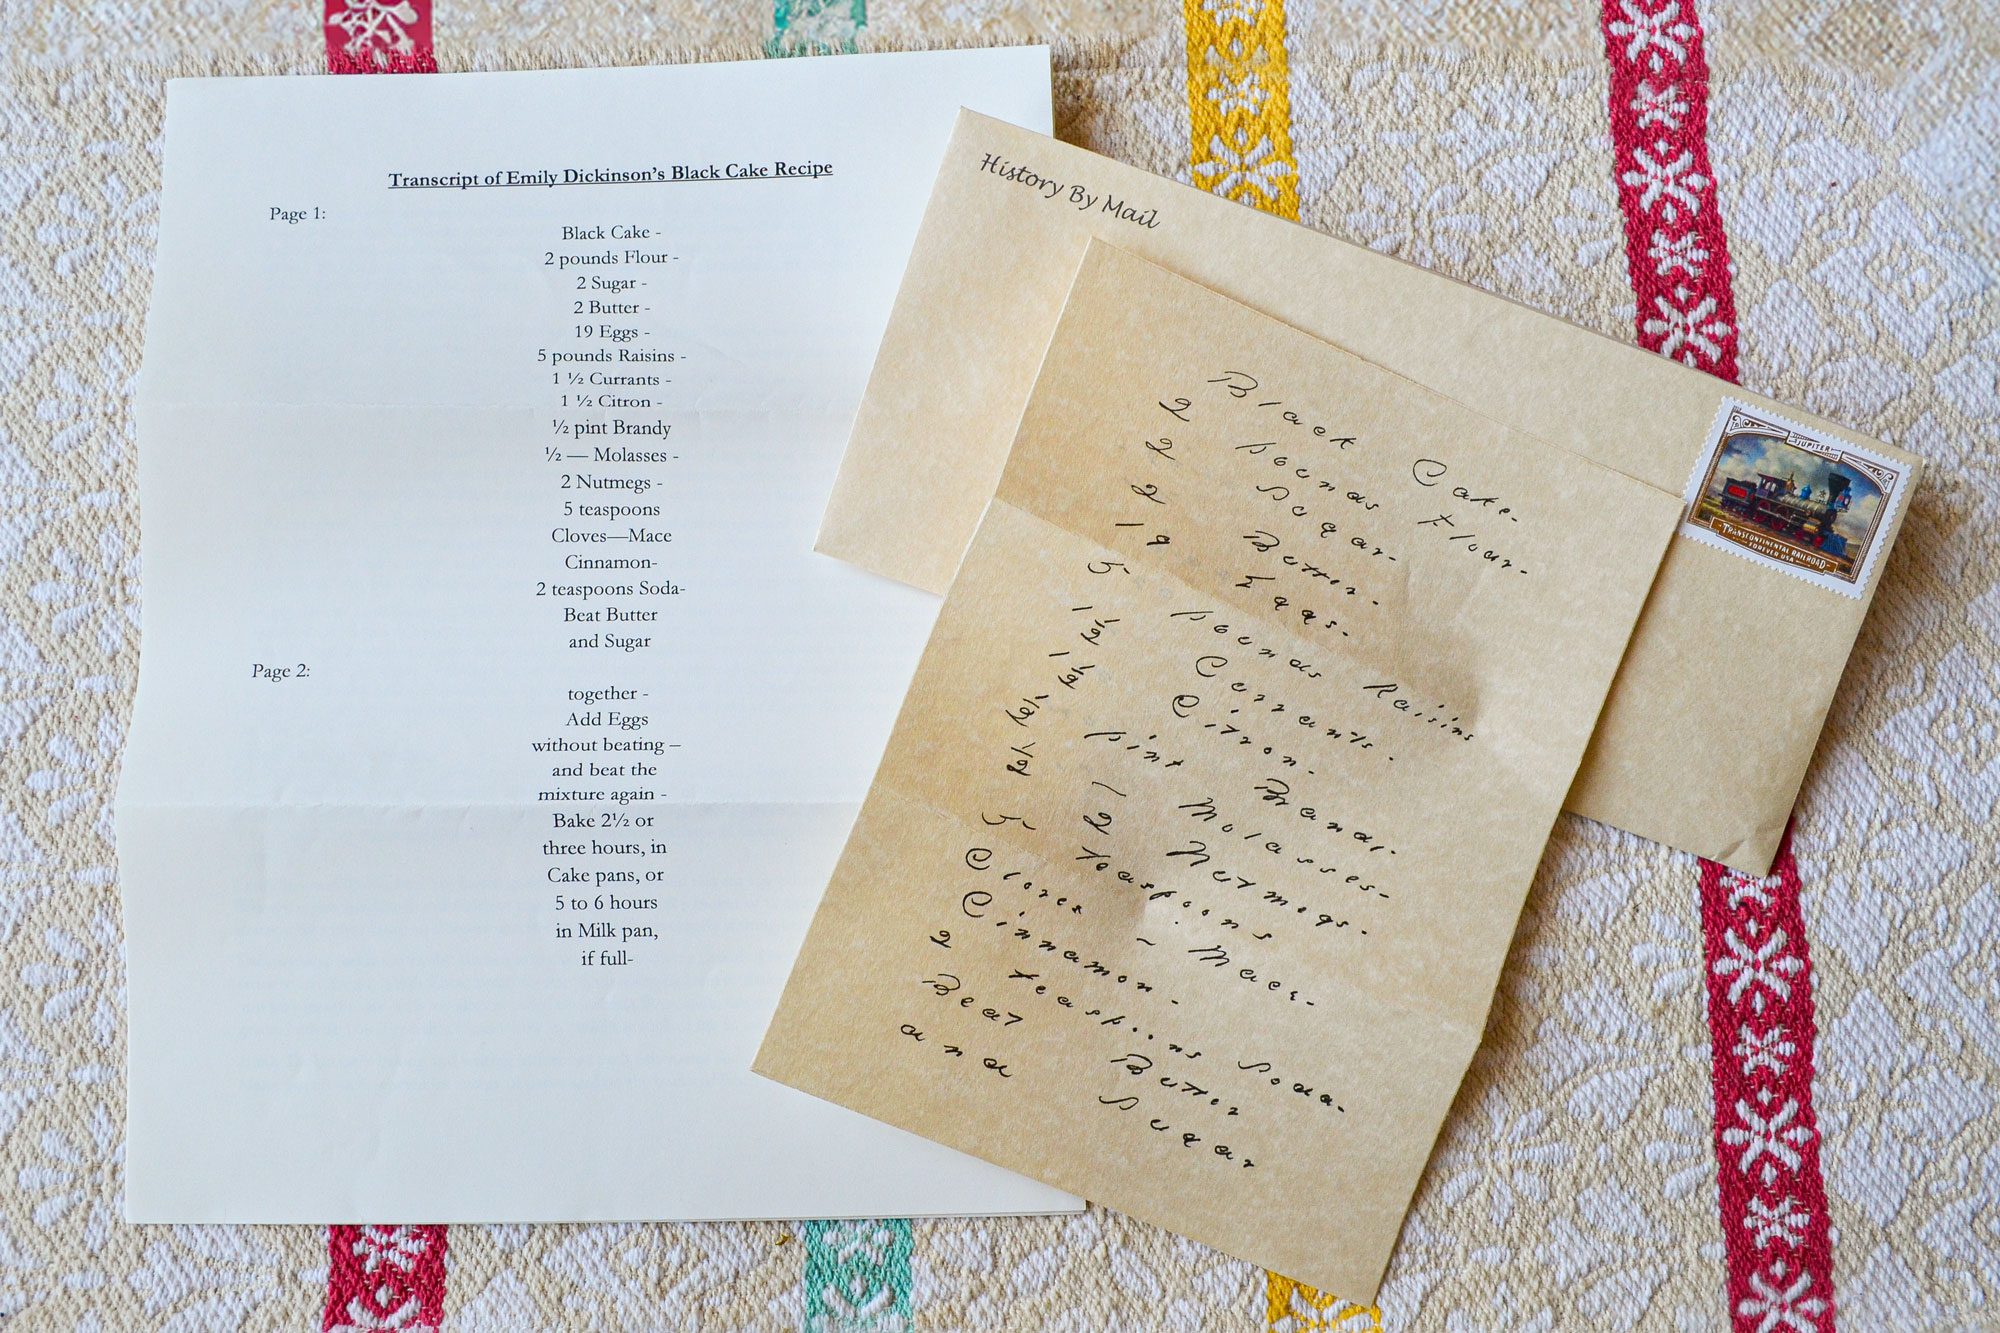 Transcript of Emily Dickinson's Black Cake Recipe
Page 1:
Black Cake -
2 pounds Flour -
2 Sugar -
2 Butter -
19 Eggs -
5 pounds Raisins -
1 ½ Currants -
1 ½ Citron -
½ pint Brandy
½ — Molasses -
2 Nutmegs -
5 teaspoons
Cloves—Mace
Cinnamon-
2 teaspoons Soda-
Beat Butter
and Sugar
Page 2:
together -
Add Eggs
without beating –
and beat the
mixture again -
Bake 2½ or
three hours, in
Cake pans, or
5 to 6 hours
in Milk pan,
if full-
History By Mail
Black Cake-
2 pounds Flour-
2 Sugar-
2 Butter-
19 Eggs-
5 pounds Raisins
1½ Currants-
1½ Citron-
½ pint Brandy
½ ~ Molasses-
2 Nutmegs-
5 teaspoons
Cloves ~ Mace-
Cinnamon-
2 teaspoons Soda-
Beat Butter
and Sugar
JUPITER
TRANSCONTINENTAL RAILROAD
FOREVER USA